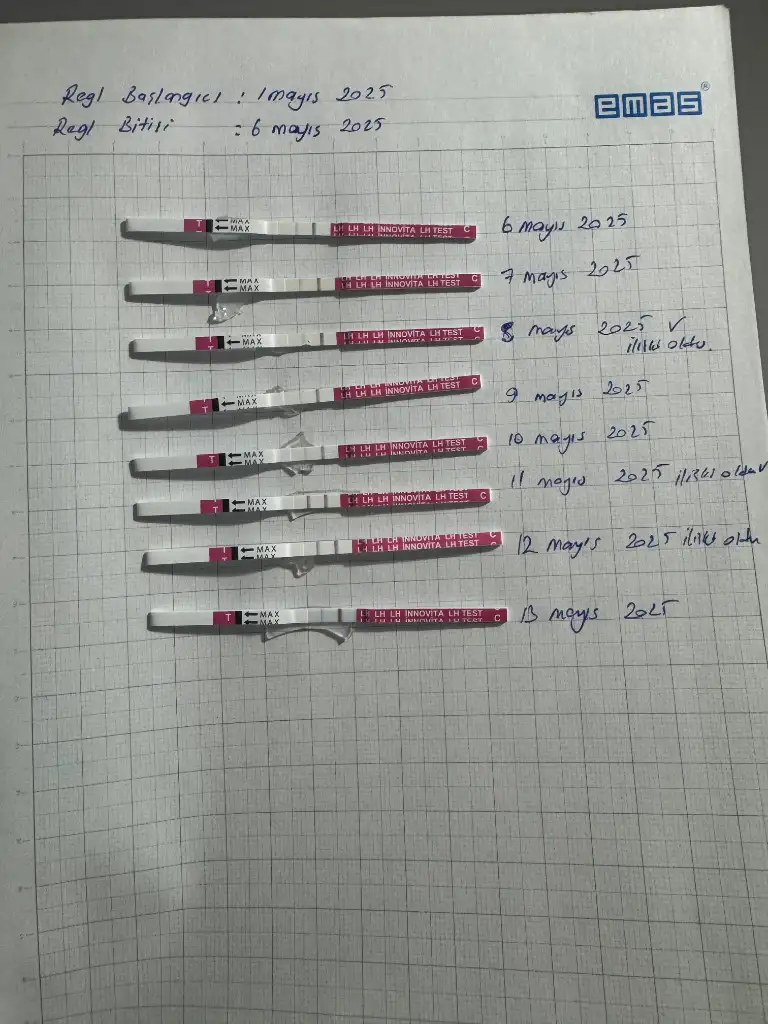 Regl Başlangıcı : 1 mayıs 2025
Regl Bitişi : 6 mayıs 2025
emas®
T MAX MAX LH LH LH INNOVITA LH TEST C 6 mayıs 2025
T MAX MAX LH LH LH INNOVITA LH TEST C 7 mayıs 2025
T MAX LH LH LH INNOVITA LH TEST C 8 mayıs 2025 ✓
ilişki oldu.
T MAX LH LH LH INNOVITA LH TEST C 9 mayıs 2025
T MAX MAX LH LH LH INNOVITA LH TEST C 10 mayıs 2025
T MAX MAX LH LH LH INNOVITA LH TEST C 11 mayıs 2025 ilişki oldu ✓
T MAX MAX LH LH LH INNOVITA LH TEST C 12 mayıs 2025 ilişki oldu
T MAX MAX LH LH LH INNOVITA LH TEST C 13 mayıs 2025